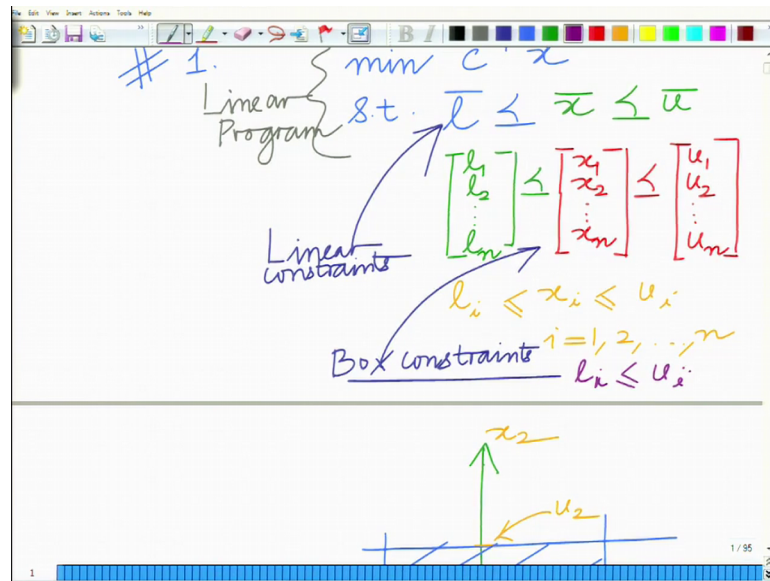 File Edit View Insert Actions Tools Help
B I
# 1. { min c · x
Linear Program
s.t. l̅ ≤ x̅ ≤ u̅
[l₁ l₂ ⋮ lₙ] ≤ [x₁ x₂ ⋮ xₙ] ≤ [u₁ u₂ ⋮ uₙ]
Linear constraints
lᵢ ≤ xᵢ ≤ uᵢ
i = 1, 2, ..., n
Box constraints
lᵢ ≤ uᵢ
x₂
u₂
1 / 95
1